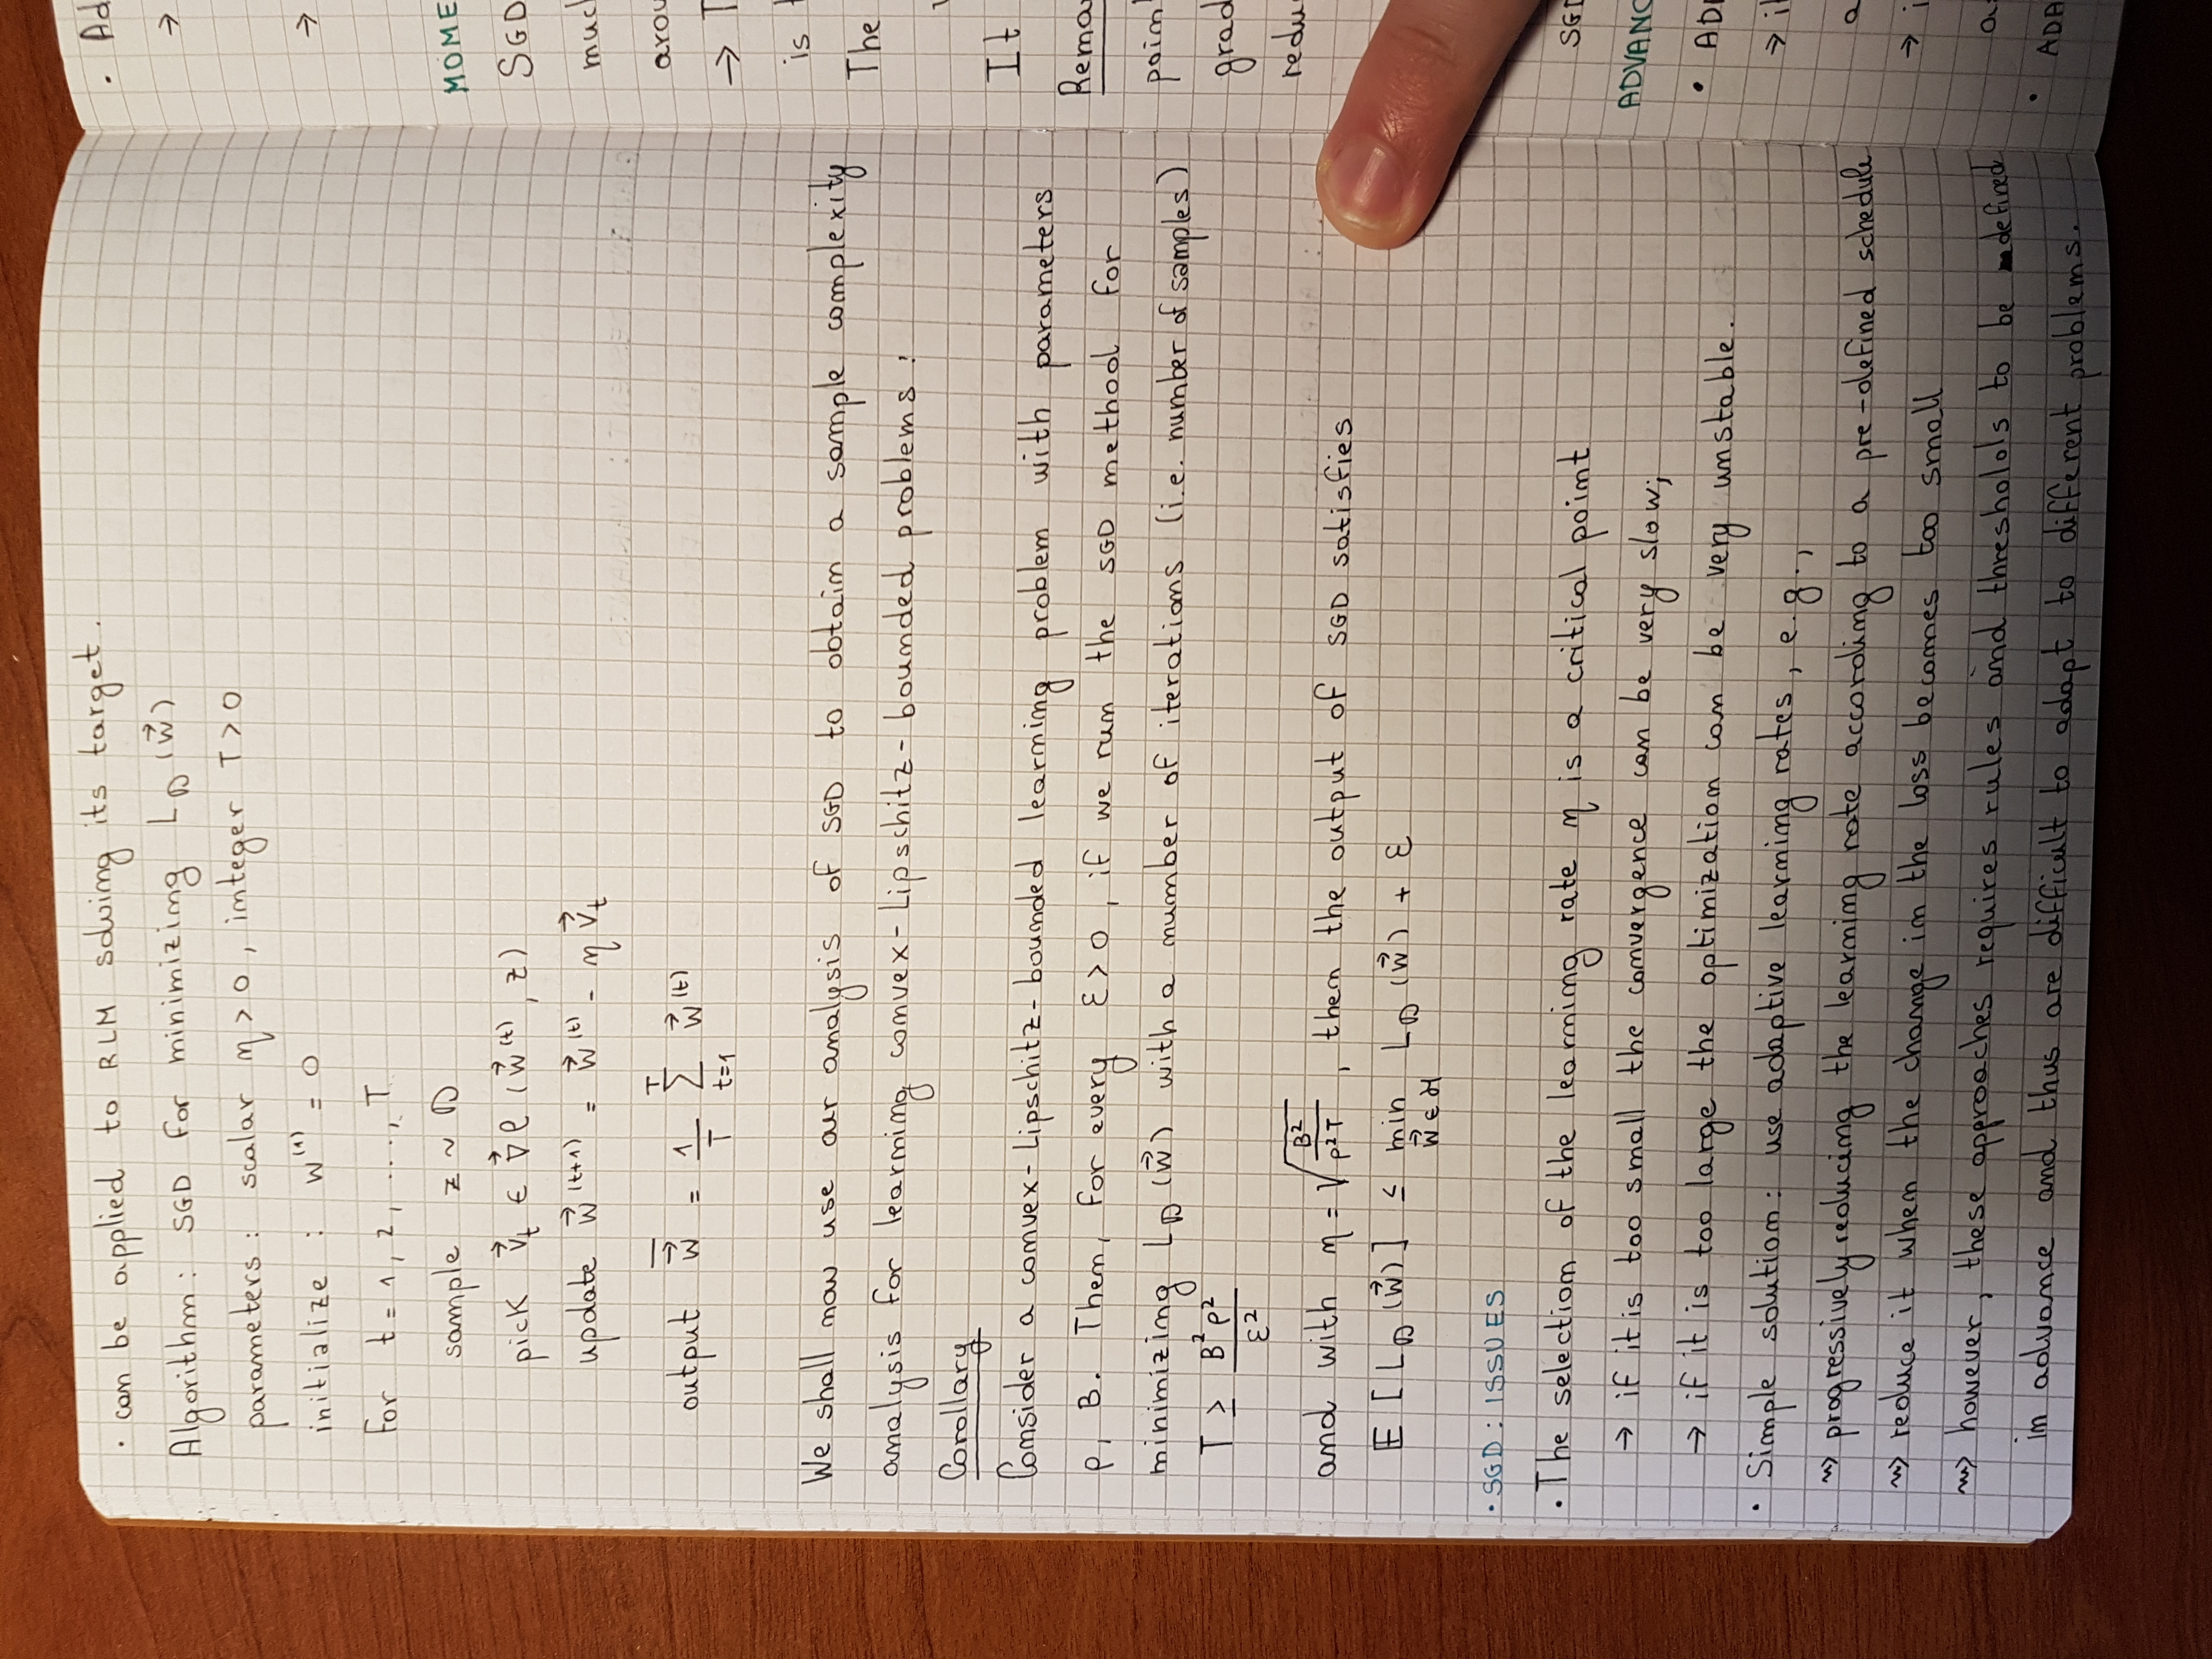 · can be applied to RLM solving its target.
Algorithm: SGD for minimizing L_D(w⃗)
parameters: scalar η > 0, integer T > 0
initialize : w^(1) = 0
for t = 1, 2, ...., T
sample z ~ D
pick v⃗_t ∈ ∇⃗ℓ(w⃗^(t), z)
update w⃗^(t+1) = w⃗^(t) - η v⃗_t
output w̄⃗ = 1/T Σ_{t=1}^{T} w⃗^(t)
We shall now use our analysis of SGD to obtain a sample complexity
analysis for learning convex-Lipschitz-bounded problems:
Corollary
Consider a convex-Lipschitz-bounded learning problem with parameters
ρ, B. Then, for every ε > 0, if we run the SGD method for
minimizing L_D(w⃗) with a number of iterations (i.e. number of samples)
T ≥ B²ρ²/ε²
and with η = √(B²/(ρ²T)), then the output of SGD satisfies
E[L_D(w⃗)] ≤ min_{w⃗∈H} L_D(w⃗) + ε
· SGD: ISSUES
· The selection of the learning rate η is a critical point
→ if it is too small the convergence can be very slow;
→ if it is too large the optimization can be very unstable.
· Simple solution: use adaptive learning rates, e.g.,
⇝ progressively reducing the learning rate according to a pre-defined schedule
⇝ reduce it when the change in the loss becomes too small
⇝ however, these approaches requires rules and thresholds to be defined
in advance and thus are difficult to adapt to different problems.
· Ad
→
→
MOME
SGD
muc
arou
→ T
is
The
It
Rema
poin
grad
redu
SGD
ADVANC
· AD
→ i
a
→ i
a
· ADA